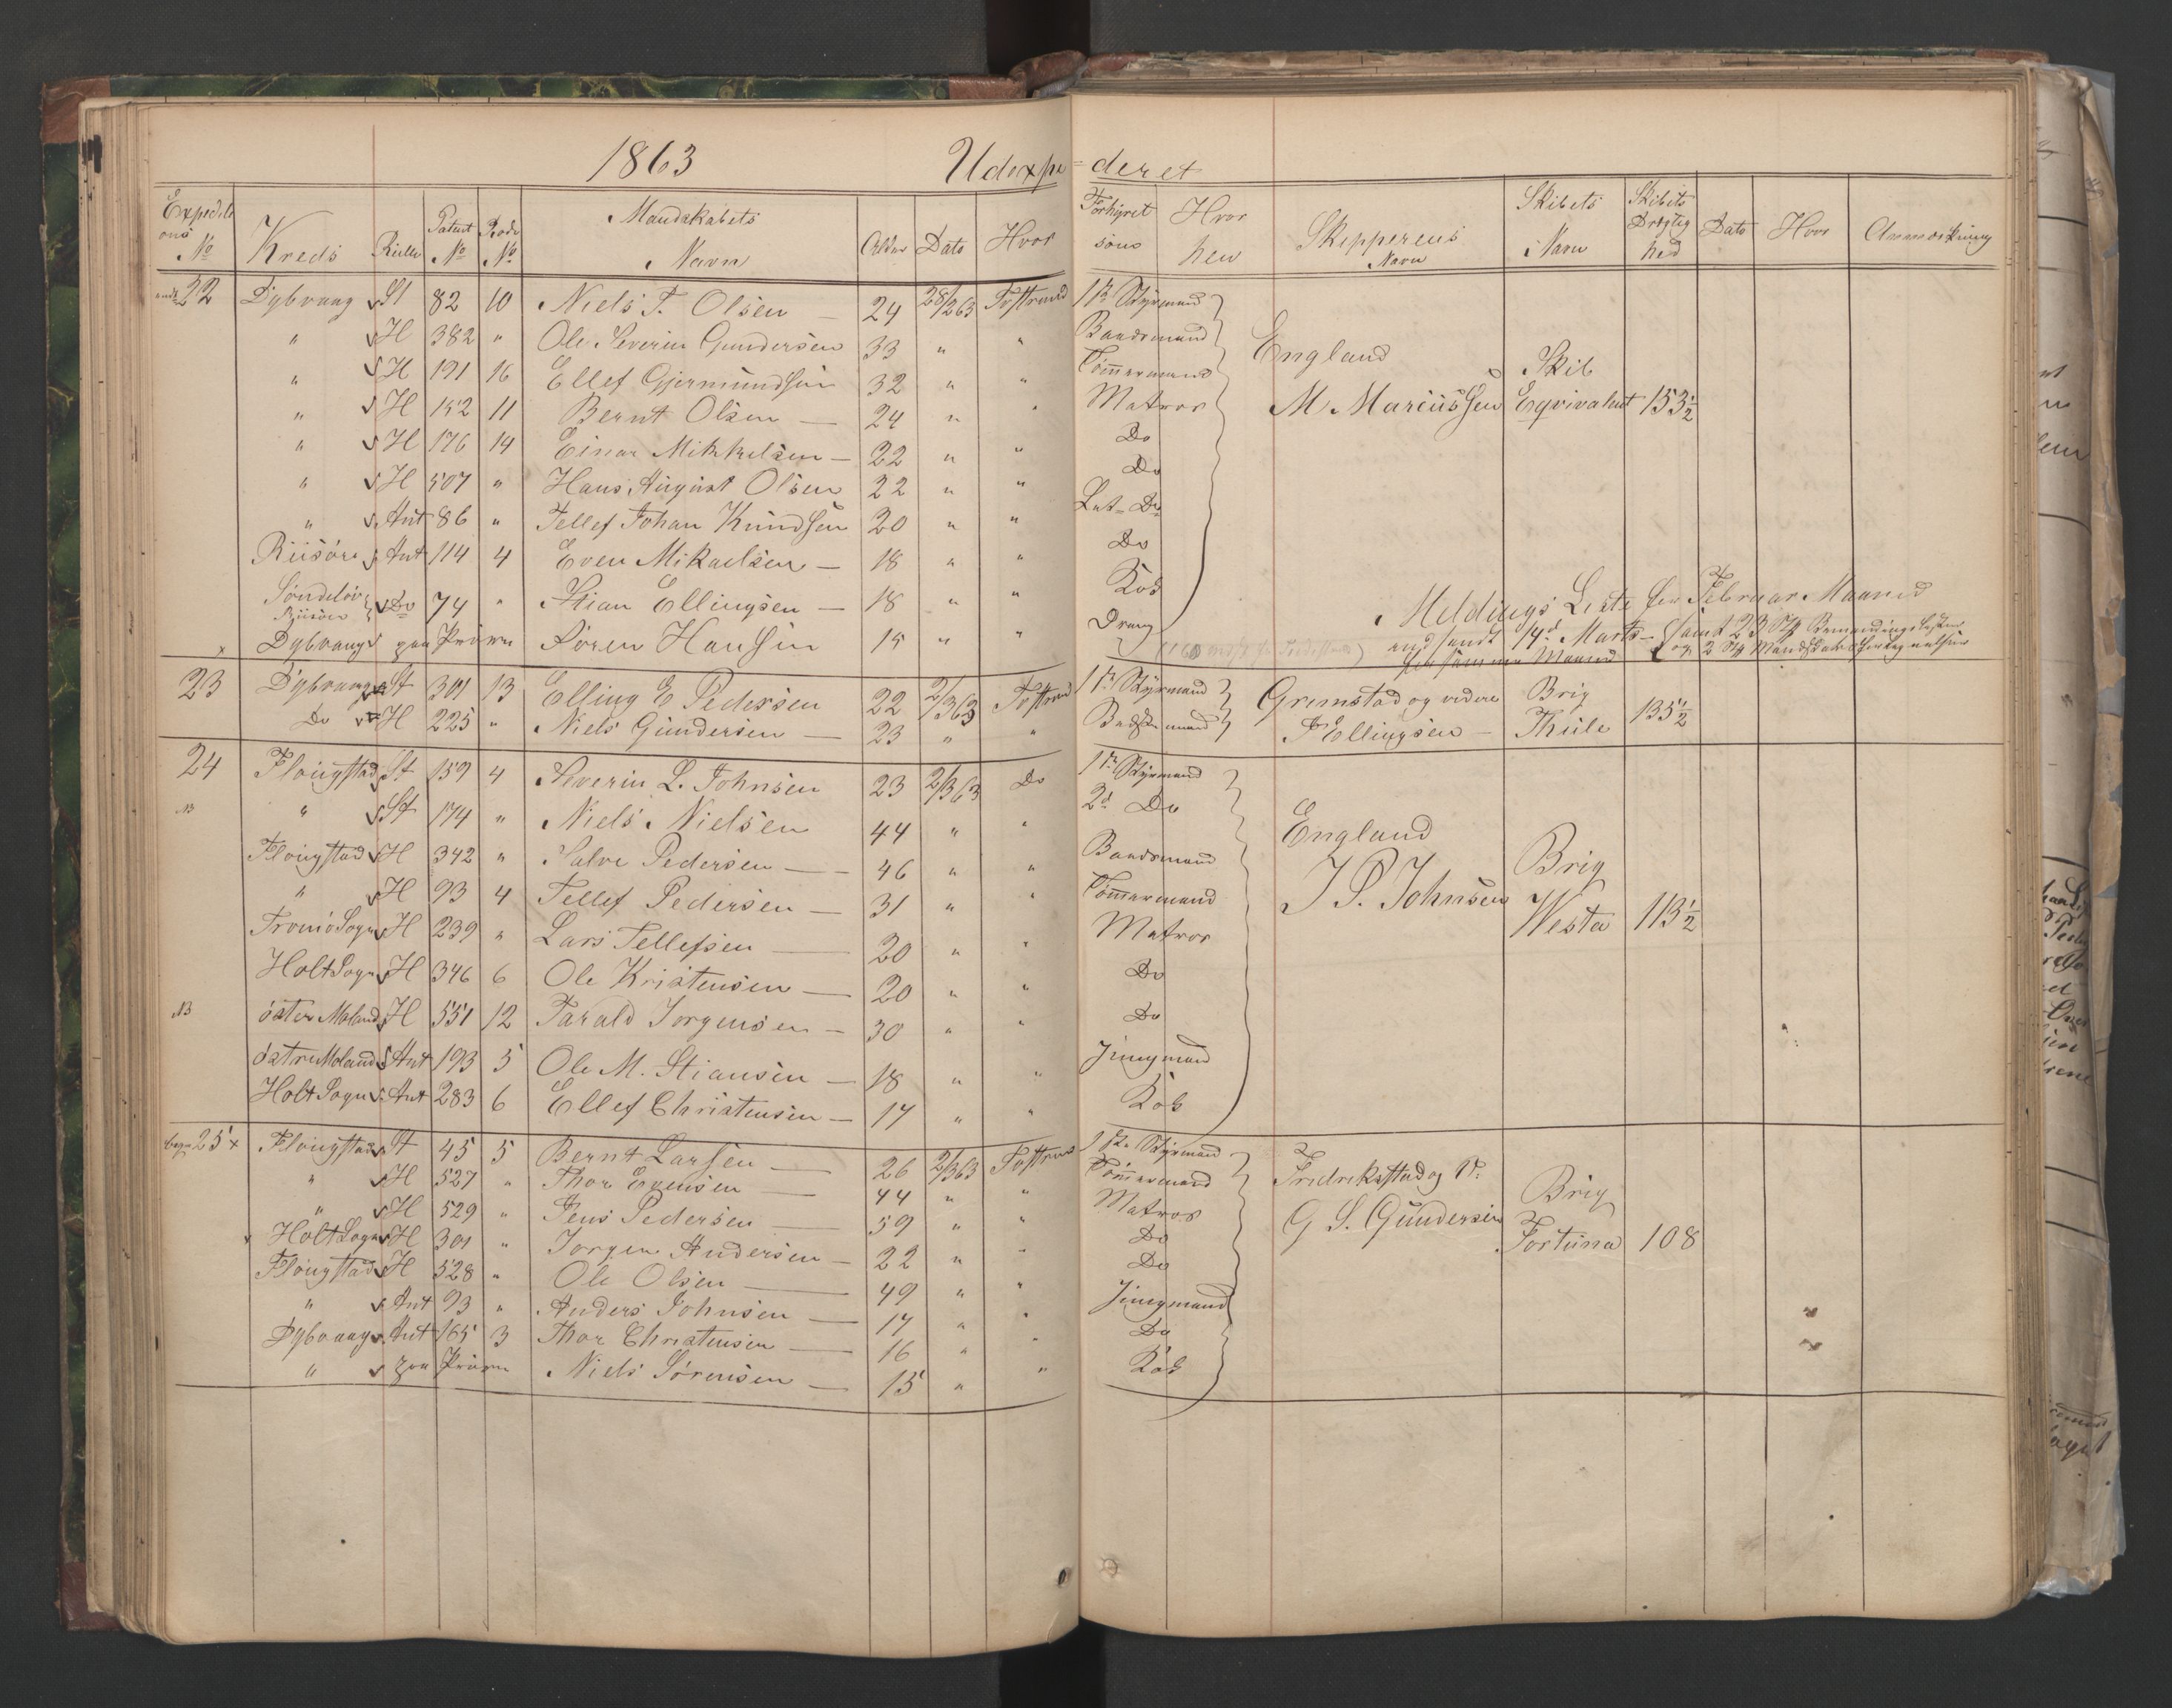 1863 Udexpe=deret
Expediti ons No | Kreds | Rulle | Patent No | Rode No | Mandskabets Navn | Alder | Dato | Hvor | Forhyret som | Hvor hen | Skipperens Navn | Skibets Navn | Skibets Drægtighed | Dato | Hvor | Anmærkning
22 Dybvaag St 82 10 Niels T. Olsen — 24 28/2 63 Tvstrand 1ste Styrmand
" H 382 " Ole Severin Gundersen 33 " " Baadsmand England
" H 191 16 Ellef Gjermundssen 32 " " Tømmermand Skib
" H 152 11 Bernt Olsen — 24 " " Matros M. Mareüssen Eqvivalent 153½
" H 176 14 Einar Mikkelsen — 22 " " Do
" H 507 " Hans August Olsen 22 " " Do
" Ant 86 " Tellef Johan Knudssen 20 " " Let- Do
Riisöer Ant 114 4 Even Mikaelsen — 18 " " Do
Söndeløv Riisøer Do 74 " Stian Ellingsen — 18 " " Kok
Meldings Liste for Februar Maaned
Dybvaag paa Prøven Søren Hanssen 15 " " Dreng
andsendt 14d Marts samt 23 Stk Bemandingslister
for samme Maaned og 2 Stk Mandskabs
23 Dybvaag St 301 13 Elling E Pedersen 22 2/3 63 Tvstrand 1ste Styrmand Grimstad og videre Brig
Do H 225 " Niels Gundersen — 23 " " Baadsmand J Ellingsen — Thule 135½
24 Flougstad St 159 4 Severin L. Johnsen 23 2/3 63 Do 1ste Styrmand
NB " St 174 " Niels Nielsen 44 " " 2d Do England
Flougstad H 342 " Salve Pedersen — 46 " " Baadsmand Brig
" H 93 4 Tellef Pedersen — 31 " " Tømmermand J P. Johnsen
Tromö Sogn H 239 " Lars Tellefsen — 20 " " Matros Westa 113½
Holt Sogn H 346 6 Ole Kristensen — 20 " " Do
NB öster Moland H 551 12 Tarald Jorgensen — 30 " " Do
östre Moland Ant 193 5 Ole M. Stiansen — 18 " " Jungmand
Holt Sogn Ant 283 6 Ellef Christensen — 17 " " Kok
25 x Flougstad St 45 5 Bernt Larsen — 26 2/3 63 Tvstrand 1ste Styrmand
" H 527 " Thor Evensen — 44 " " Tømmermand Fredrikstad og V. Brig
" H 529 " Jens Pedersen — 59 " " Matros G S. Gundersen
x Holt Sogn H 301 " Jorgen Andersen — 22 " " Do Fortuna 108
Flougstad H 528 " Ole Olsen — 49 " " Do
" Ant 93 " Anders Johnsen — 17 " " Jungmand
Dybvaag Ant 165 3 Thor Christensen — 16 " " Do
" paa Prøven Niels Sörensen — 15 " " Kok